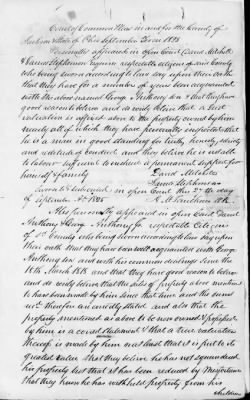 Court of Common Pleas in and for the County of
Jackson State of Ohio September Term 1825
Personally appeared in open Court David Mitchell
& James Stephenson Esquires respectable citizens of said County
who being sworn according to law say upon their oath
that they have for a number of years been acquainted
with the above named George Anthony Sen that they have
good reason to believe and do verily believe that a just
valuation is affixed above to the property owned by him
nearly all of which they have personally inspected that
he is a man in good standing for truth, honesty, sobriety
and upright conduct. And they believe he is unable
to labour sufficient to render a permanent support for
himself & family
David Mitchell
James Stephenson
Sworn to & subscribed in open court the 2nd day
of September Ad. 1825
Also personally appeared in open Court David
Anthony & George Anthony Jr. respectable Citizens
of Sd. County who being sworn according to law say upon
their oath that they have been well acquainted with George
Anthony Sen and with his common dealings since the
18th March 1818 and that they have good reason to believe
and do verily believe that the side of property above mentioned
to have been made by him since that time and the sums
rec'd therefor are correctly stated and also that the
property mentioned as above to be now owned & possessed
by him is a correct statement & that a true valuation
thereof is made by him and that it is put to its
greatest value that they believe he has not squandered
his property but that it has been reduced by Misfortune
that they know he has withheld property from his
children